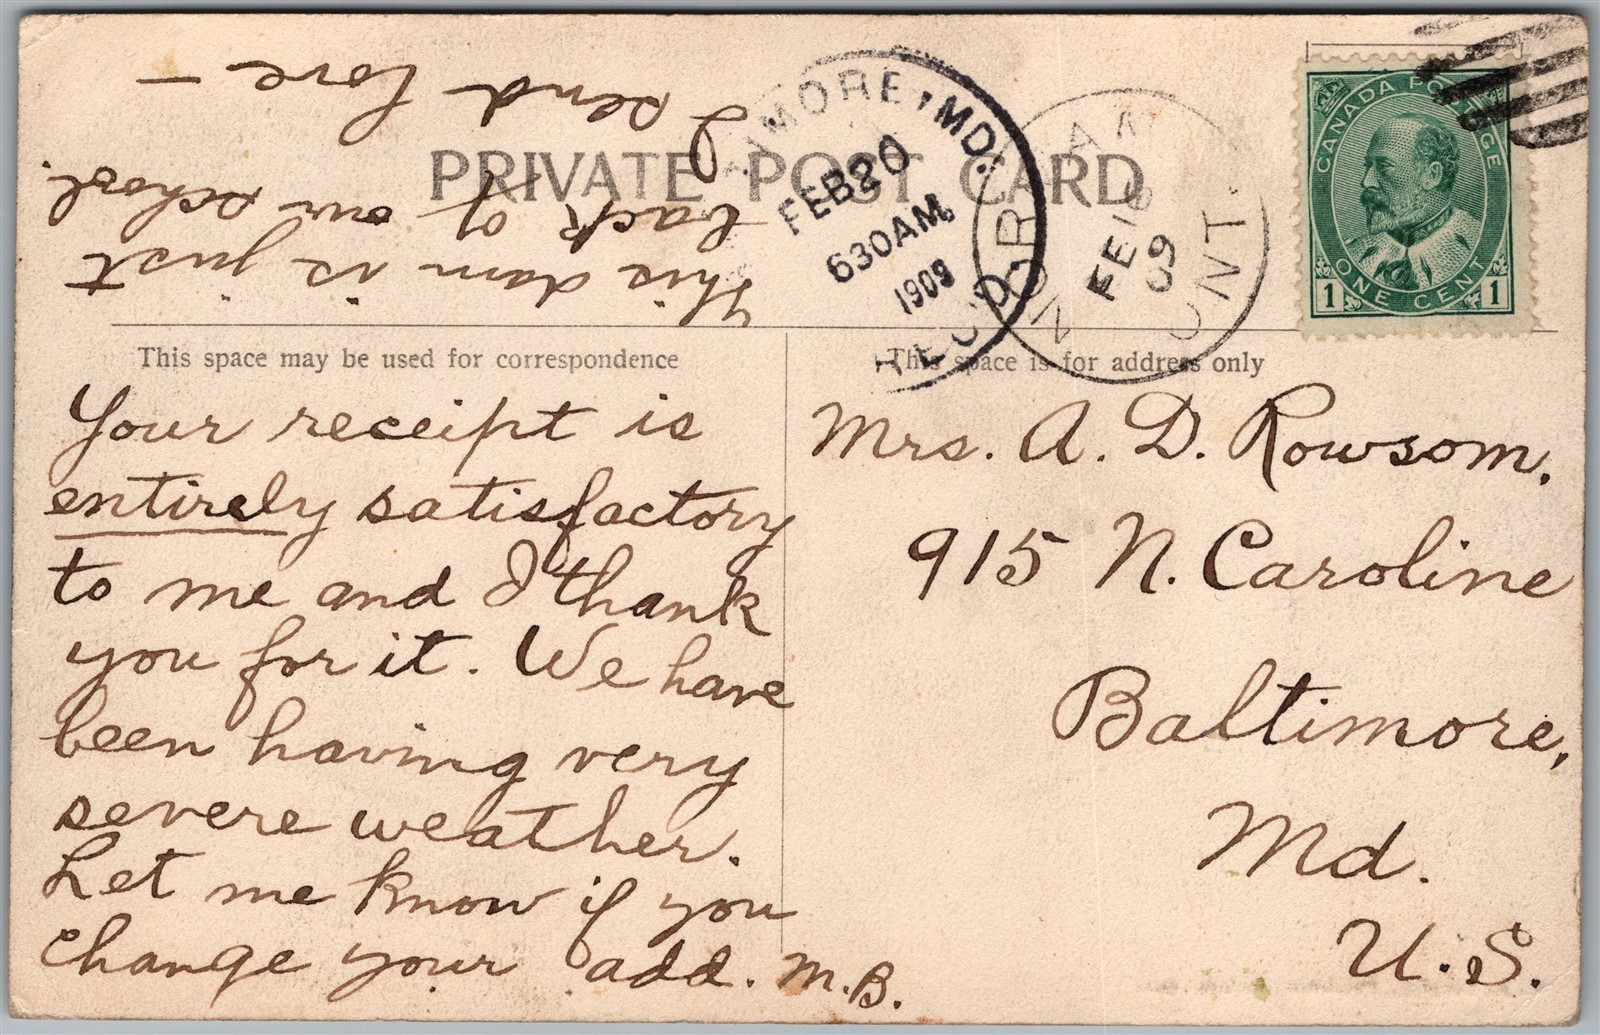 PRIVATE POST CARD
CANADA POSTAGE
ONE CENT
1 1
MORE, MD.
FEB 20
630 AM
1909
REC'D
NOR
AM
FE
09
ONT.
This dam is just
back of our school.
I send love —
This space may be used for correspondence
This space is for address only
Your receipt is
entirely satisfactory
to me and I thank
you for it. We have
been having very
severe weather.
Let me know if you
change your add. M.B.
Mrs. A. D. Rowsom,
915 N. Caroline
Baltimore,
Md.
U.S.